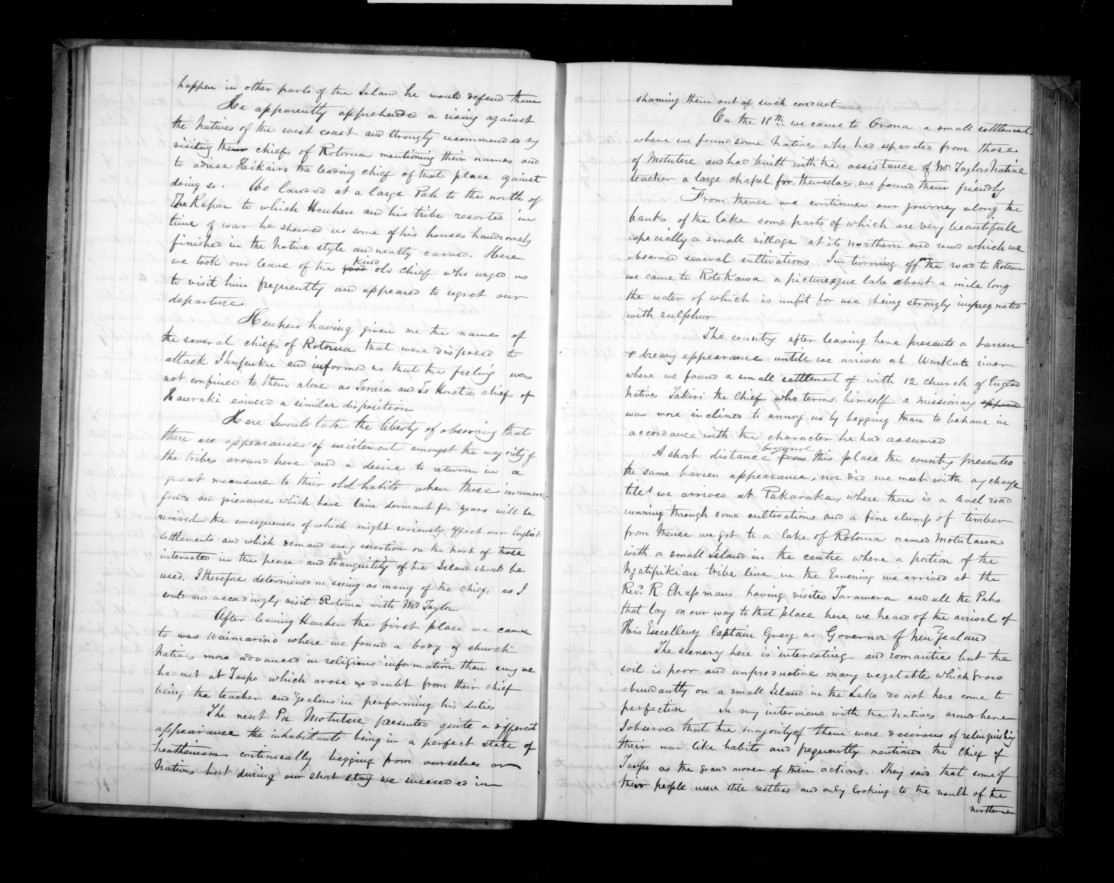 happen in other parts of the Island he would defend them
He apparently apprehended a rising against
the Natives of the west coast and strongly recommended my
visiting their chiefs of Rotorua mentioning their names and
to advise Hikairo the leading chief of that place against
doing so. We landed at a large Pah to the north of
to which Heuheu and his tribe resorted in
time of war he showed us some of his houses handsomely
finished in the Native style and neatly carved. Here
we took our leave of the kind old chief who urged us
to visit him frequently and appeared to regret our
departure
Heuheu having given me the names of
the several chiefs of Rotorua that were disposed to
attack and informed us that the feeling was
not confined to them alone as and Te Horeta chief of
Hauraki evinced a similar disposition
Here I would take the liberty of observing that
there are appearances of excitement amongst the majority of
the tribes around here and a desire to return in a
great measure to their old habits when those
feuds and grievances which have lain dormant for years will be
revived the consequences of which might seriously effect our English
settlements and which demand every exertion on the part of those
interested in the peace and tranquility of the Island should be
used. I therefore determined on seeing as many of the chiefs as I
could and accordingly visit Rotorua with Mr Taylor
After leaving Heuheu the first place we came
to was Waimarino where we found a body of church
Natives more advanced in religious information than any we
had met at Taupo which arose no doubt from their chief
being the teacher and zealous in performing his duties
The next Pa Motutere presented quite a different
appearance the inhabitants being in a perfect state of
heathenism continually begging from ourselves or
Natives but during our short stay we succeeded in
shaming them out of such conduct
On the 18th we came to Orona a small settlement
where we found some Natives who had separated from those
of Motutere and had built with the assistance of Mr Taylors Native
teacher a large chapel for themselves we found them friendly
From thence we continued our journey along the
banks of the lake some parts of which are very beautifull
especially a small village at its northern end near which we
observed several cultivations. In turning off on the road to Rotorua
we came to Roto Kawa a picturesque lake about a mile long
the water of which is unfit for use being strongly impregnated
with sulphur
The country after leaving here presents a barren
& dreary appearance untill we arrived at Waikato river
where we found a small settlement of with 12 church of England
Natives Takiri the Chief who terms himself a missionary
was more inclined to annoy us by begging than to behave in
accordance with the character he had assumed
A short distance beyond from this place the country presented
the same barren appearance, nor did we meet with a change
till we arrived at Pakaraka, where there is a level road
running through some cultivations and a fine clump of timber
from thence we got to a lake of Rotorua named Motutawa
with a small Island in the centre where a portion of the
Ngatipikiau tribe live in the Evening we arrived at the
Revd R Chapmans having visited Tarawera and all the Pahs
that lay on our way to that place here we heard of the arrival of
His Excellency Captain Grey as Governor of New Zealand
The scenery here is interesting and romantic but the
soil is poor and unproductive many vegetable which grow
abundantly on a small Island in the Lake do not here come to
perfection In my interviews with the Natives around here
I observed that the majority of them were desirous of relinquishing
their war like habits and frequently mentioned the Chief of
Taupo as the grand mover of their actions. They said that some of
their people were still restless and only looking to the result of the
northern